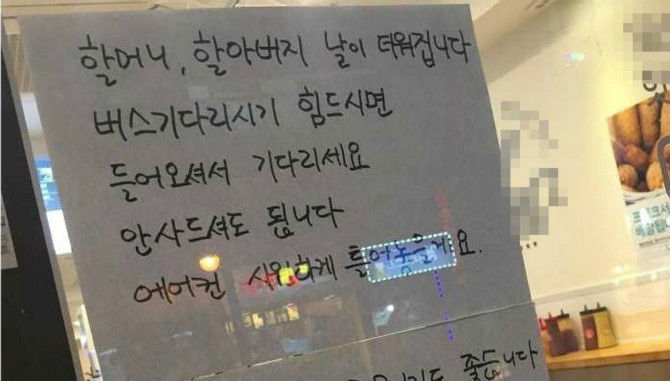 할머니, 할아버지 날이 더워집니다
버스기다리시기 힘드시면
들어오셔서 기다리세요
안사드셔도 됩니다
에어컨 시원하게 틀어놓을게요.
좋습니다